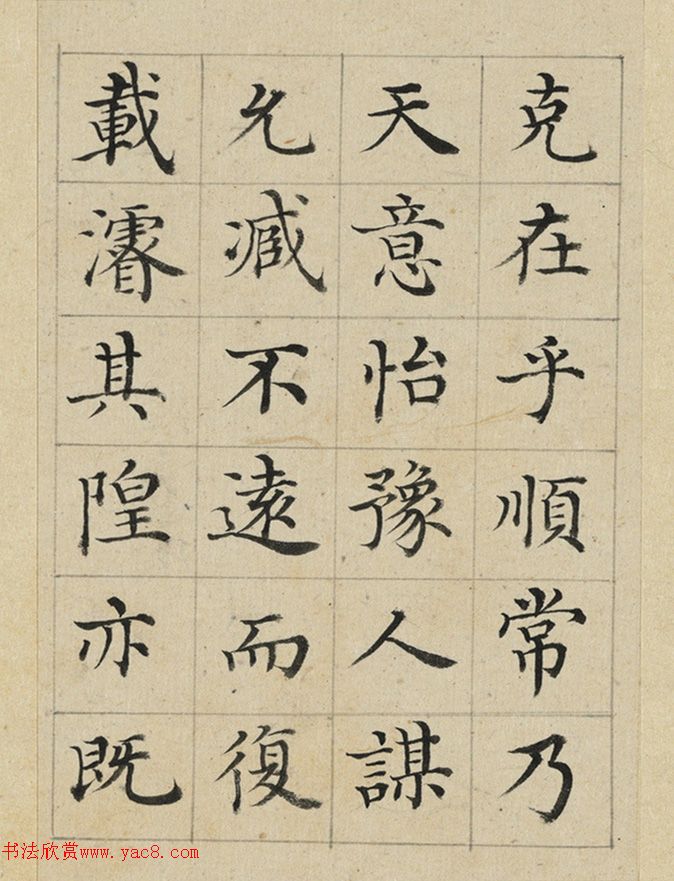 克在乎順常乃
天意怡豫人謀
允臧不遠而復
載濬其隍亦既
书法欣赏www.yac8.com